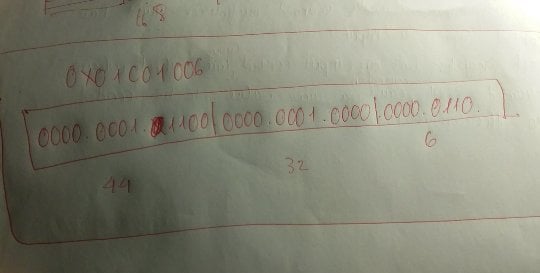 0x01C01006
0000.0001.1100|0000.0001.0000|0000.0110.
44
32
6